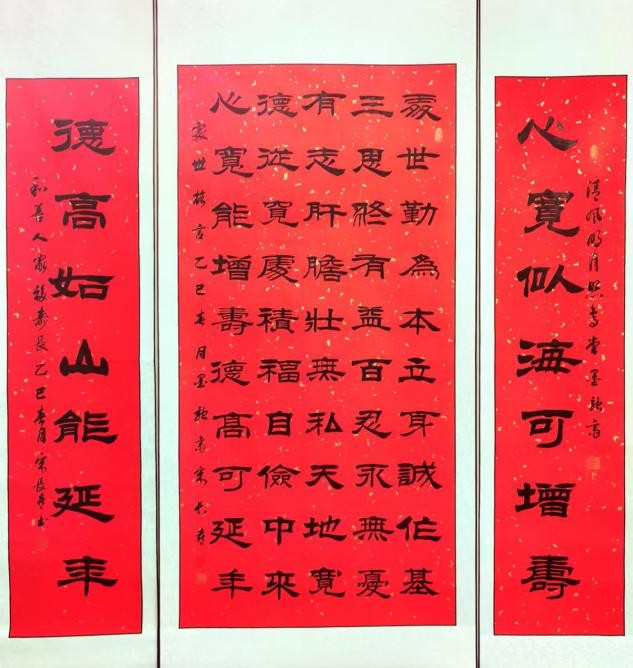 清風明月照高堂墨
心寬似海可增壽
處世勤為本立身誠作基
三思終有益百忍永無憂
有志肝膽壯無私天地寬
德從寬處積福自儉中來
心寬能增壽德高可延年
處世格言乙巳春月墨
德高如山能延年
和善人家福壽長乙巳春月宋長春書